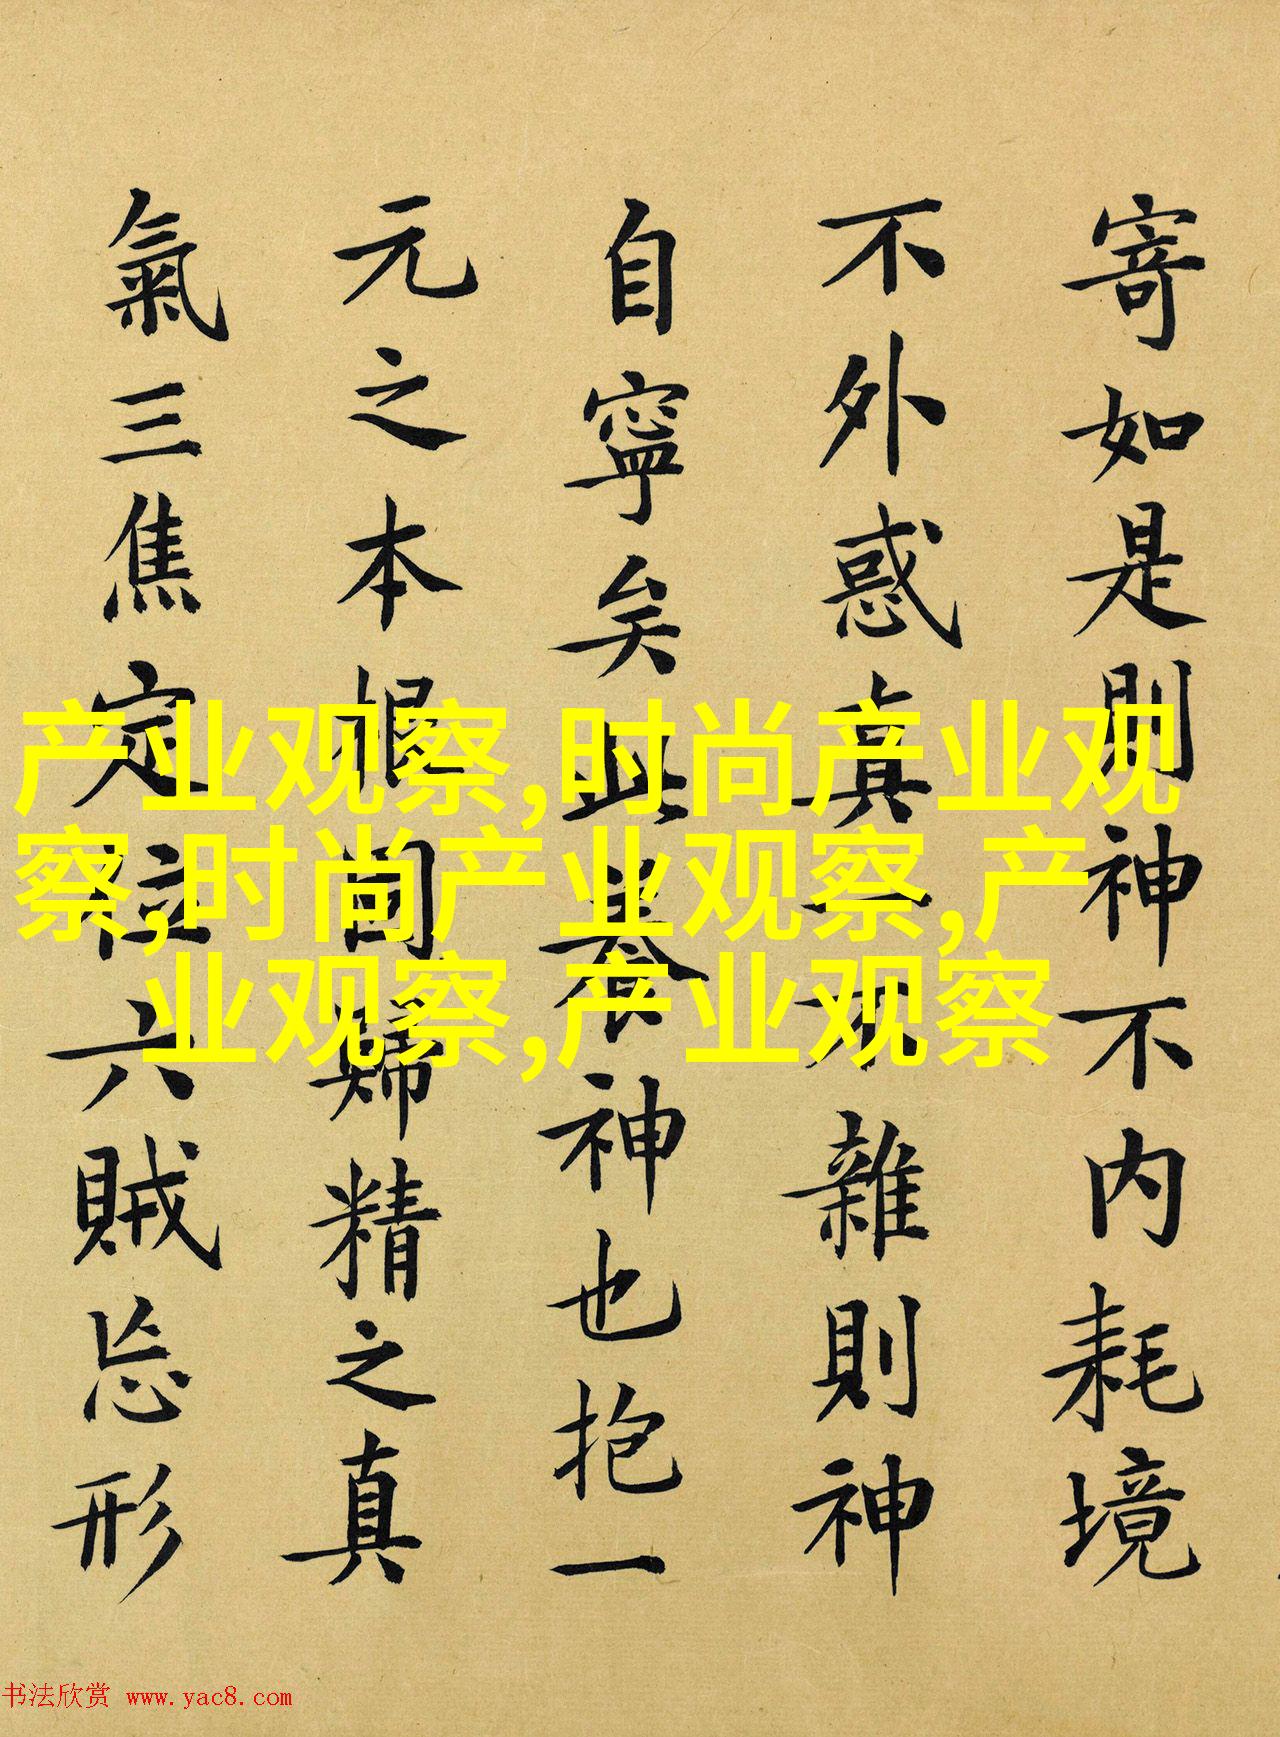 寄如是則神不内耗境
不外惑真一不雜則神
自寧矣此養神也抱一
元之本根固歸精之真
氣三焦定位六賊忘形
产业观察,时尚产业观
察,时尚产业观察,产
业观察,产业观察
书法欣赏 www.yac8.com